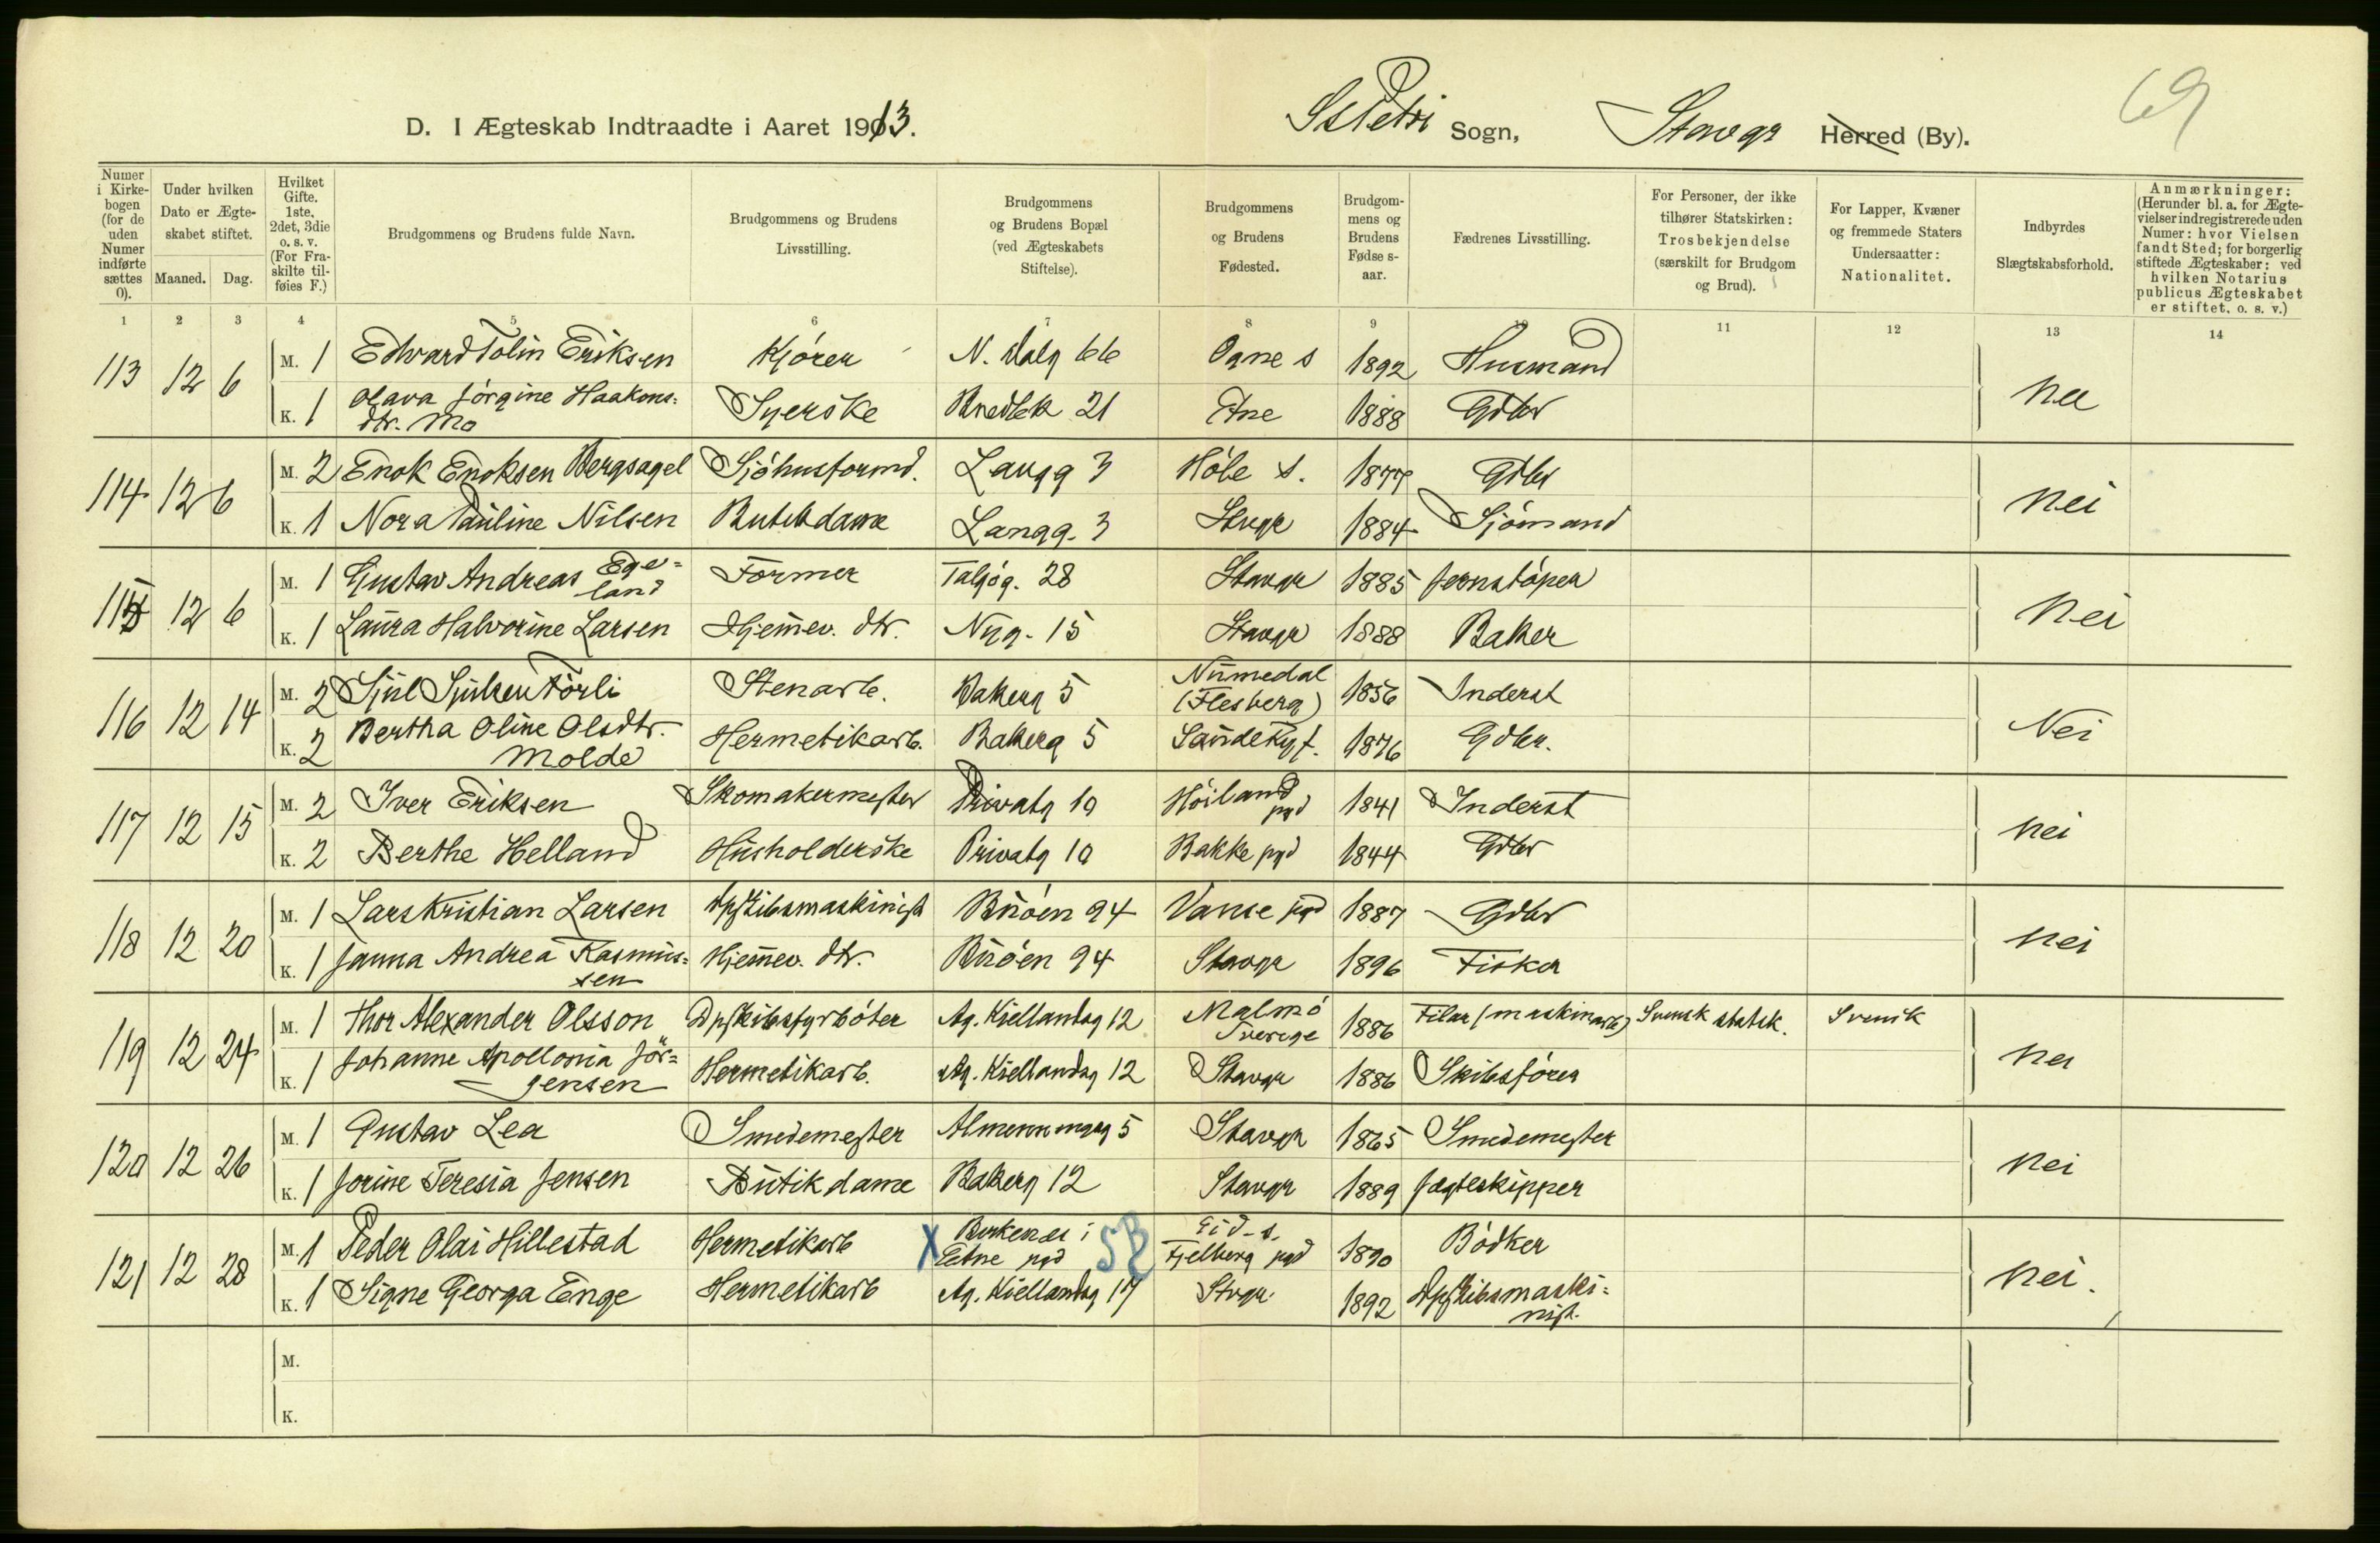 69
D. I Ægteskab Indtraadte i Aaret 1913. St Petri Sogn, Stavgr Herred (By).
Numer i Kirkebogen (for de uden Numer indførte sættes 0). Under hvilken Dato er Ægteskabet stiftet. Maaned. Dag. Hvilket Gifte. 1ste, 2det, 3die o. s. v. (For Fraskilte tilføies F.) Brudgommens og Brudens fulde Navn. Brudgommens og Brudens Livsstilling. Brudgommens og Brudens Bopæl (ved Ægteskabets Stiftelse). Brudgommens og Brudens Fødested. Brudgommens og Brudens Fødselsaar. Fædrenes Livsstilling. For Personer, der ikke tilhører Statskirken: Trosbekjendelse (særskilt for Brudgom og Brud). For Lapper, Kvæner og fremmede Staters Undersaatter: Nationalitet. Indbyrdes Slægtskabsforhold. Anmærkninger: (Herunder bl. a. for Ægtevielser indregistrerede uden Numer: hvor Vielsen fandt Sted; for borgerlig stiftede Ægteskaber: ved hvilken Notarius publicus Ægteskabet er stiftet, o. s. v.)
1 2 3 4 5 6 7 8 9 10 11 12 13 14
113 12 6 M. 1 Edvard Tolin Eriksen Kjörer N. Dalg 66 Ogne s 1892 Husmand nei
K. 1 Olava Jörgine Haakons= dtr. Mo Syerske Bredbk 21 Etne 1888 Gdbr
114 12 6 M. 2 Enok Enoksen Bergsagel Sjöhusformd. Langg 3 Höle s. 1877 Gdbr nei
K. 1 Nora Pauline Nilsen Butikdame Langg. 3 Stvgr 1884 Sjömand
115 12 6 M. 1 Gustav Andreas Ege= land Former Talgög. 28 Stavgr 1885 Jernstöper nei
K. 1 Laura Halvorine Larsen Hjemmev. dtr. Nyg. 15 Stavgr 1888 Baker
116 12 14 M. 2 Sjul Sjulsen Törli Stenarb. Bakerg 5 Numedal (Flesberg) 1856 Inderst Nei
K. 2 Bertha Oline Olsdtr. Molde Hermetikarb. Bakerg 5 Sande Ryf. 1876 Gdbr.
117 12 15 M. 2 Iver Eriksen Skomakermester Privatg 10 Höiland pgd 1841 Inderst nei
K. 2 Berthe Helland Husholderske Privatg 10 Bakke pgd 1844 Gdbr
118 12 20 M. 1 Lars Kristian Larsen Dpskibsmaskinist Buöen 94 Vanse pgd 1887 Gdbr nei
K. 1 Janna Andrea Rasmus= sen Hjemmev. dtr. Buöen 94 Stavgr 1896 Fisker
119 12 24 M. 1 Thor Alexander Olsson Dpskibsfyrböter Ag. Kiellandsg 12 Malmö Sverige 1886 Filar (maskinarb) Svensk statsk. Svensk nei
K. 1 Johanne Apollonia Jör= gensen Hermetikarb. Ag. Kiellandsg 12 Stavgr 1886 Skibsförer
120 12 26 M. 1 Gustav Lea Smedemester Almenningsg 5 Stavgr 1865 Smedemester nei
K. 1 Jorine Teresia Jensen Butikdame Bakerg 12 Stavgr 1889 Jægteskipper
121 12 28 M. 1 Peder Olai Hillestad Hermetikarb X Birkenes i Etne pgd 5B Eid s. Fjelberg pgd 1890 Bödker nei.
K. 1 Signe Georga Enge Hermetikarb Ag. Kiellandsg 17 Stvgr 1892 Dpskibsmaski= nist.
M.
K.